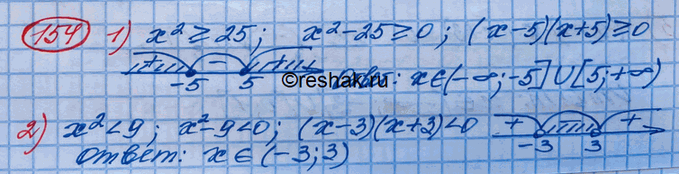 154 1) x² ≥ 25; x² - 25 ≥ 0; (x-5)(x+5) ≥ 0
+ - +
-5 5 ответ: x ∈ (-∞; -5] ∪ [5; +∞)
©reshak.ru
2) x² < 9; x² - 9 < 0; (x-3)(x+3) < 0 + +
-3 3
ответ: x ∈ (-3; 3)